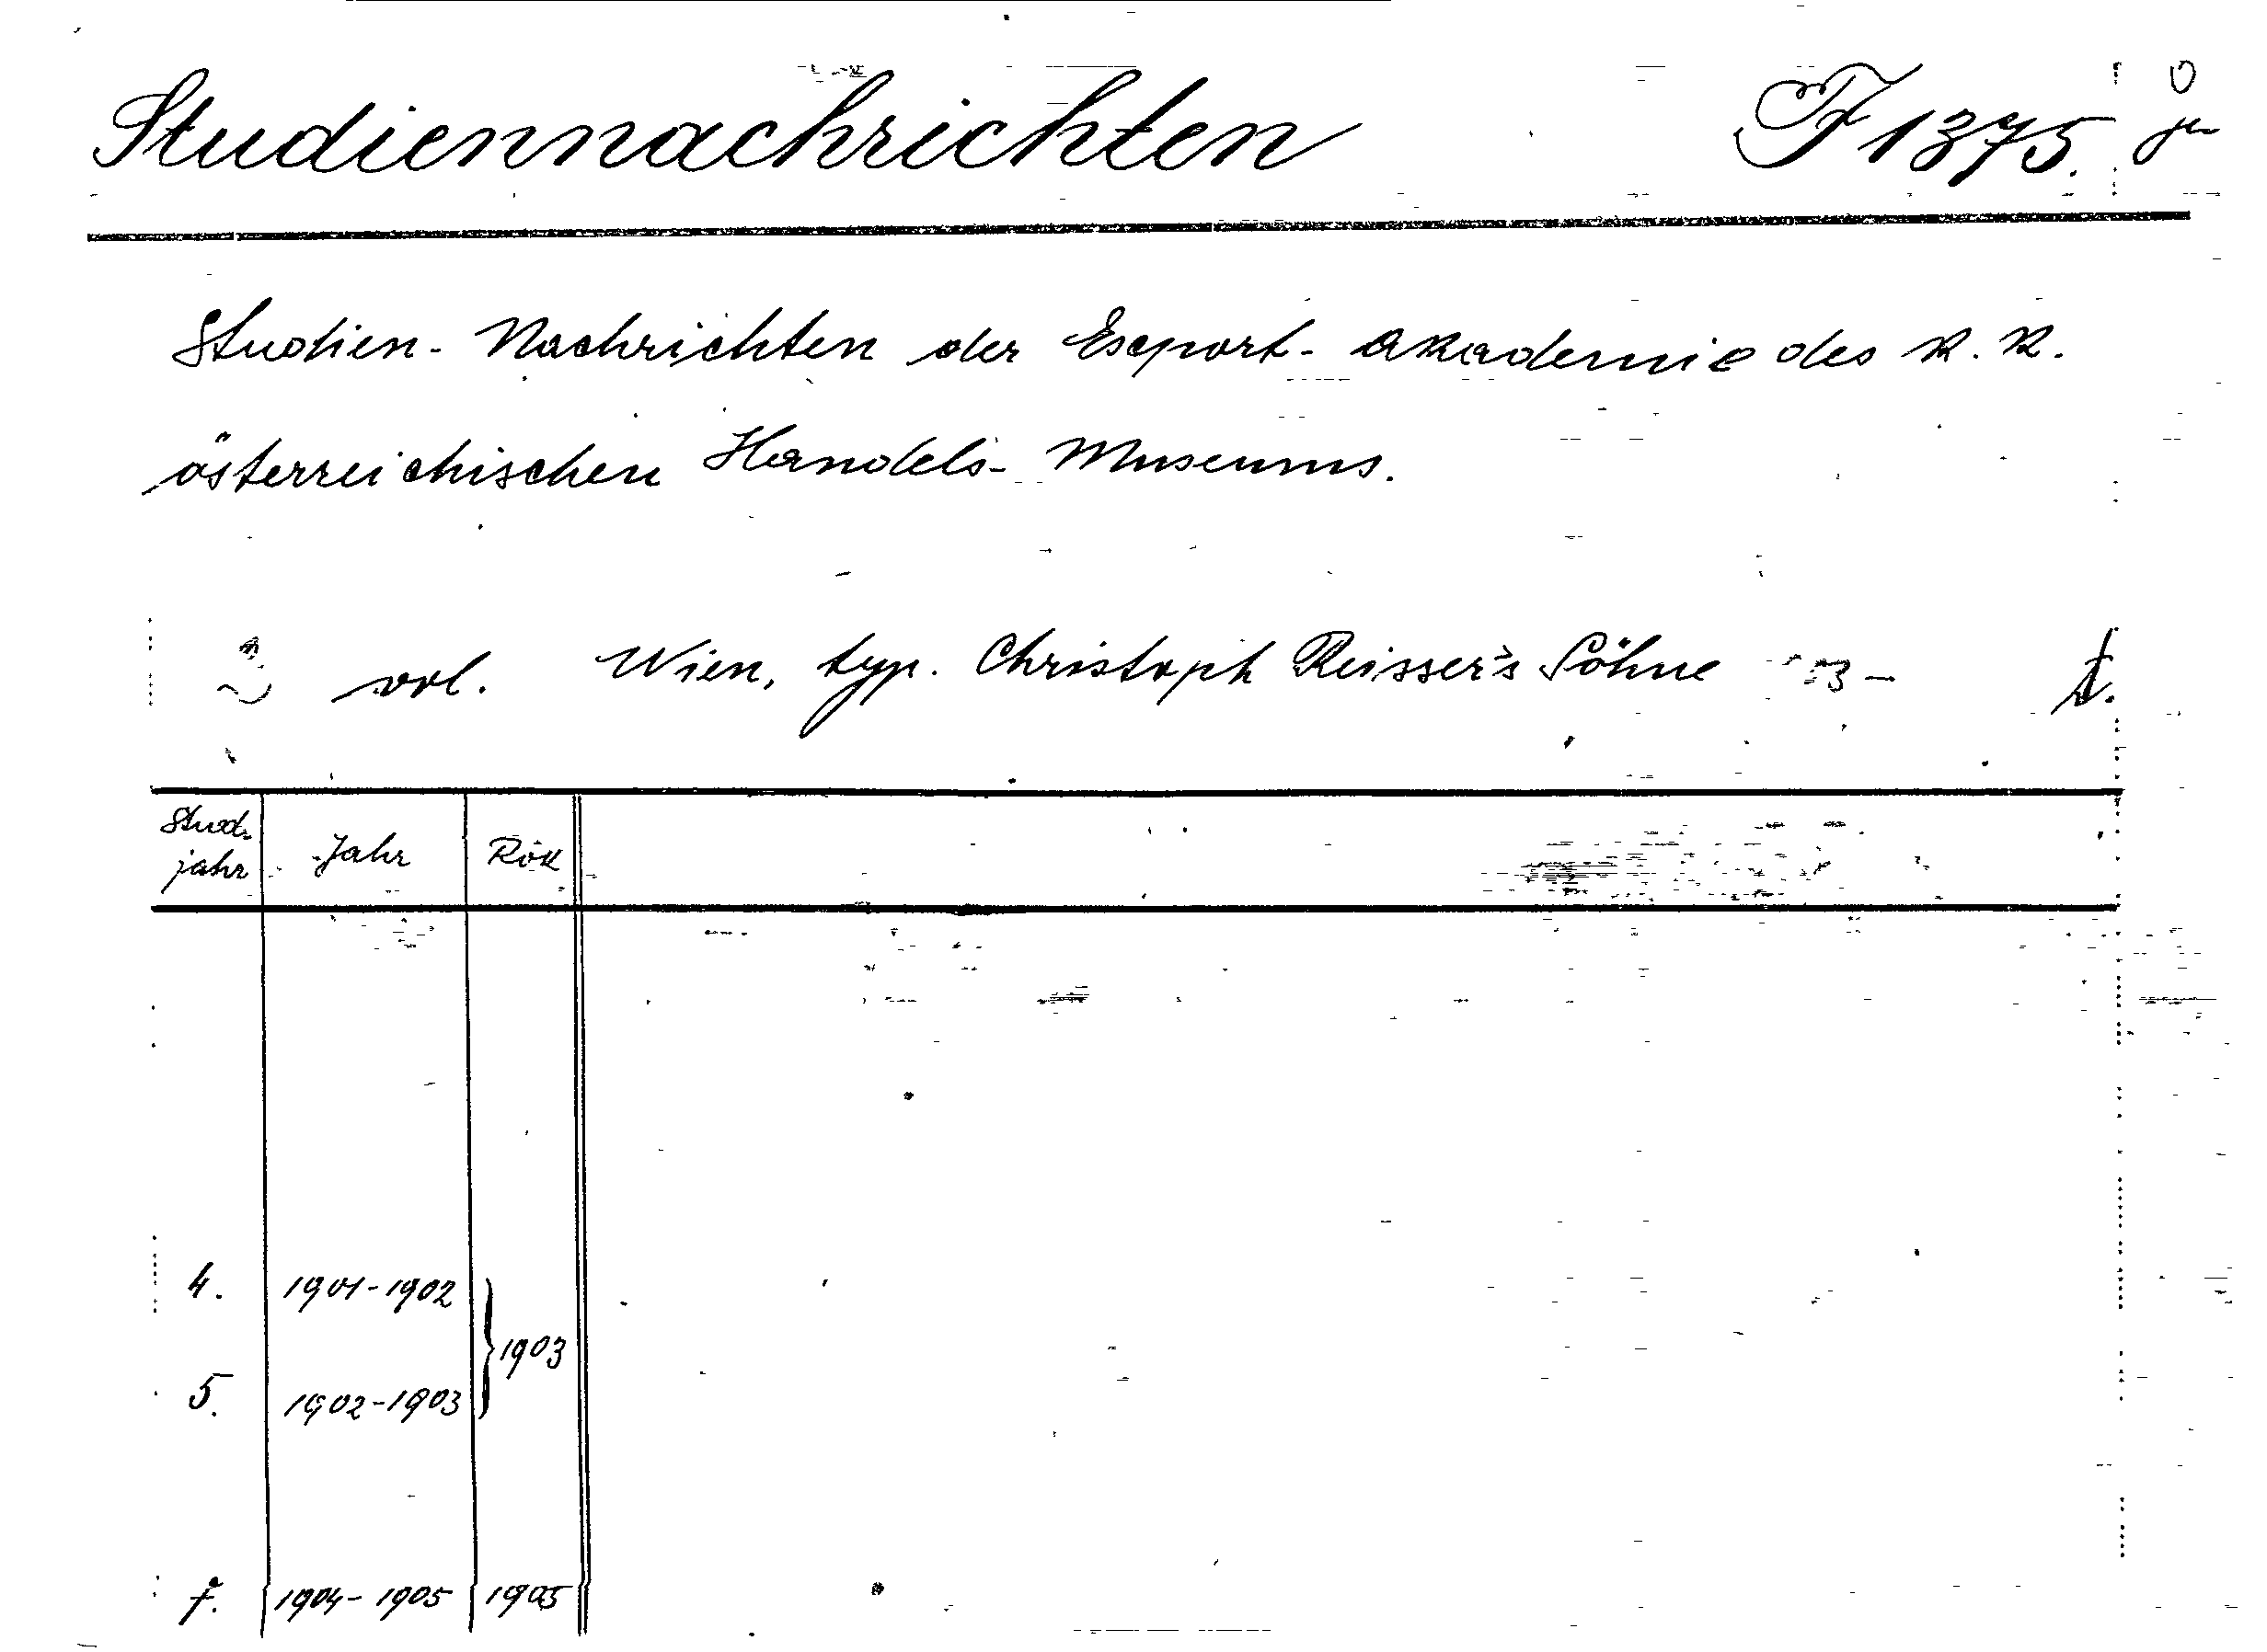 Studiennachrichten F 1375.
Studien- Nachrichten der Export- Akademie des k. k.
österreichischen Handels- Museums.
vol. Wien, typ. Christoph Reisser's Söhne
Stud.
jahr
Jahr
Rök
4. 1901-1902
1903
5. 1902-1903
7. 1904-1905 1905